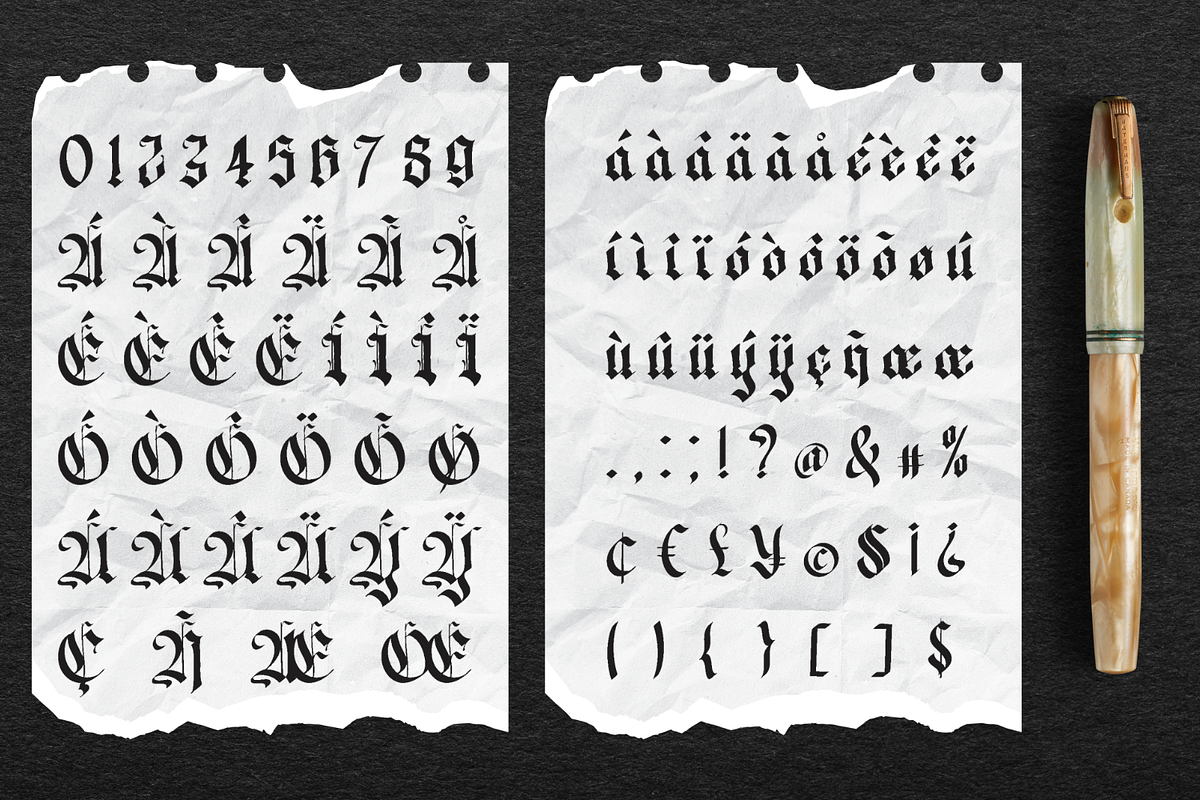 0 1 2 3 4 5 6 7 8 9
Á À Â Ä Ã Å
É È Ê Ë Í Ì Î Ï
Ó Ò Ô Ö Õ Ø
Ú Ù Û Ü Ý Ÿ
Ç Ñ Æ Œ
á à â ä ã å é è ê ë
í ì î ï ó ò ô ö õ ø ú
ù û ü ý ÿ ç ñ æ œ
. , : ; ! ? @ & # %
¢ € £ ¥ © § ¡ ¿
( ) { } [ ] $